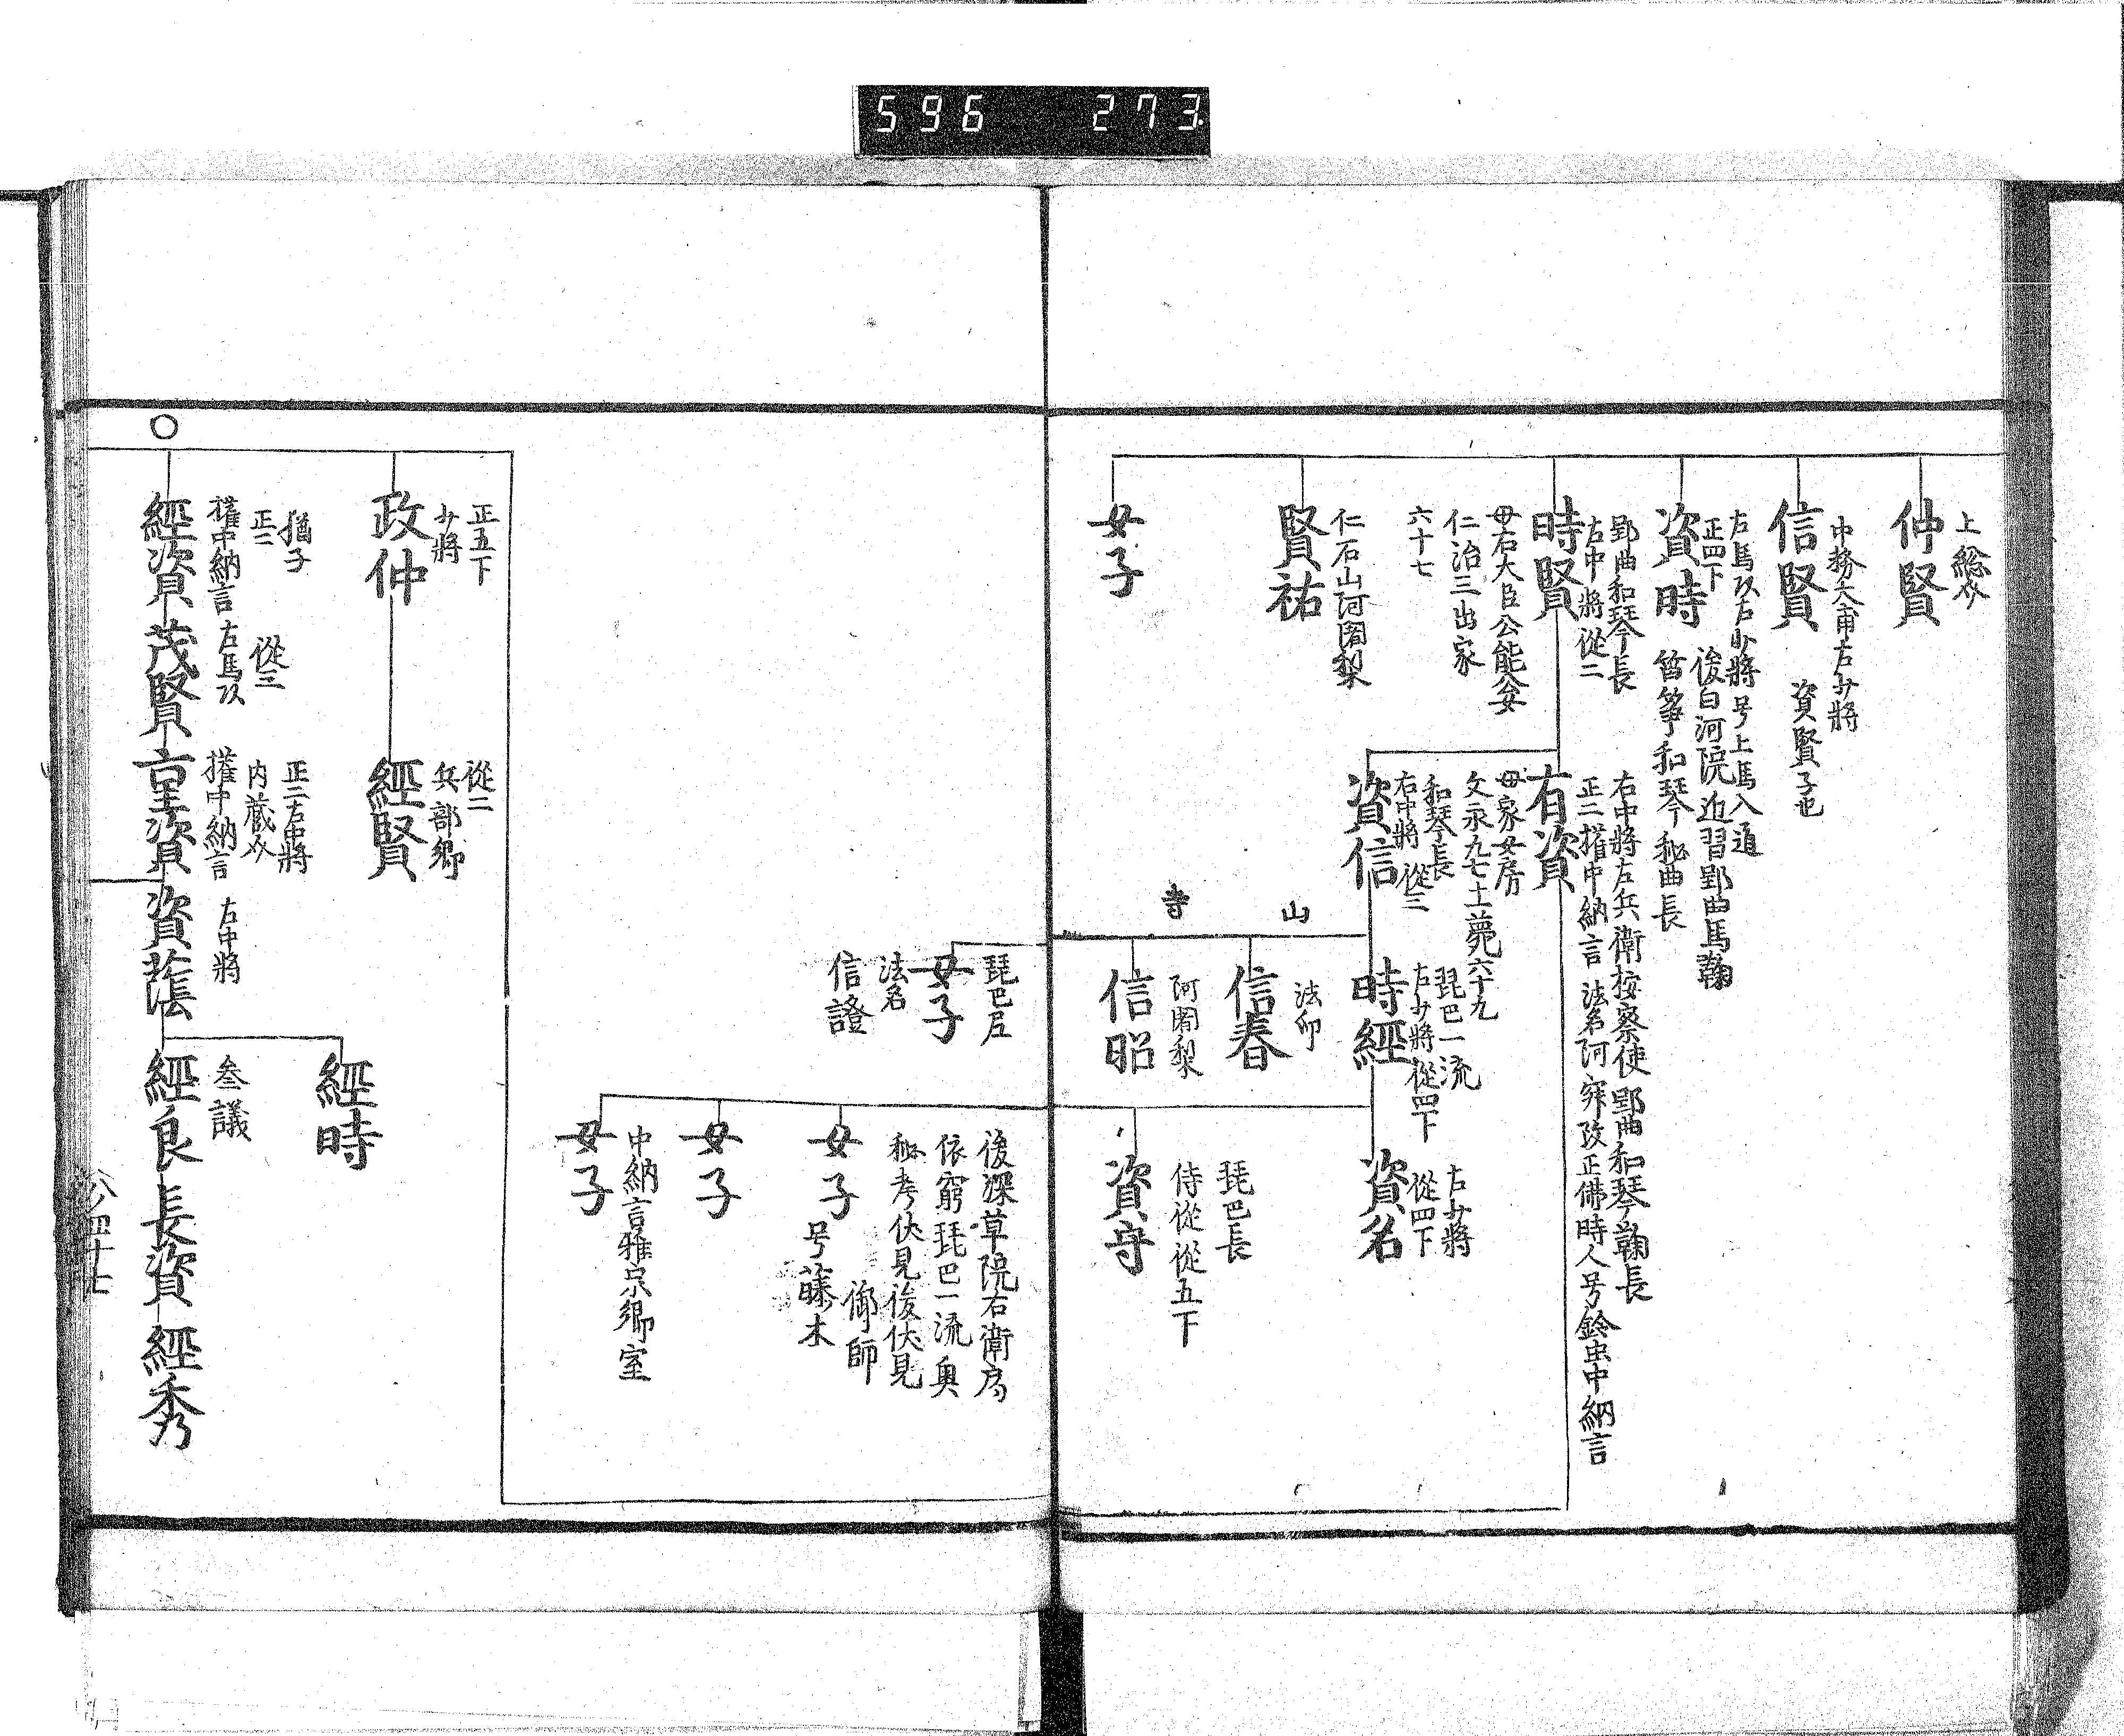 596 273
上総介
仲賢
中務大甫右少將
信賢
資賢子也
左馬頭右少將号上馬入道
正四下
資時
後白河院近習郢曲馬鞠
笛箏和琴秘曲長
郢曲和琴長
右中將從二
時賢
母右大臣公能公女
仁治三出家
六十七
仁石山阿闍梨
賢祐
女子
右中將左兵衛按察使郢曲和琴鞠長
正二權中納言法名阿寂改正佛時人号鈴虫中納言
有資
母家女房
文永九七十二薨六十九
和琴長
右中將從三
資信
琵巴一流
右少將從四下
時經
山
法印
信春
寺
阿闍梨
信昭
左少將
從四下
資名
琵巴長
侍從從五下
資守
琵巴尼
女子
法名
信證
後深草院右衛門
依窮琵巴一流奥
秘考伏見後伏見
御師
女子
号藤木
女子
中納言雅宗卿室
女子
正五下
少將
政仲
從二
兵部卿
經賢
〇
猶子
正二
權中納言
經資
從三
右馬頭
茂賢
正二右中將
内蔵介
權中納言
重資
右中將
資蔭
經時
叁議
經良
長資
經秀
八ノ四十七